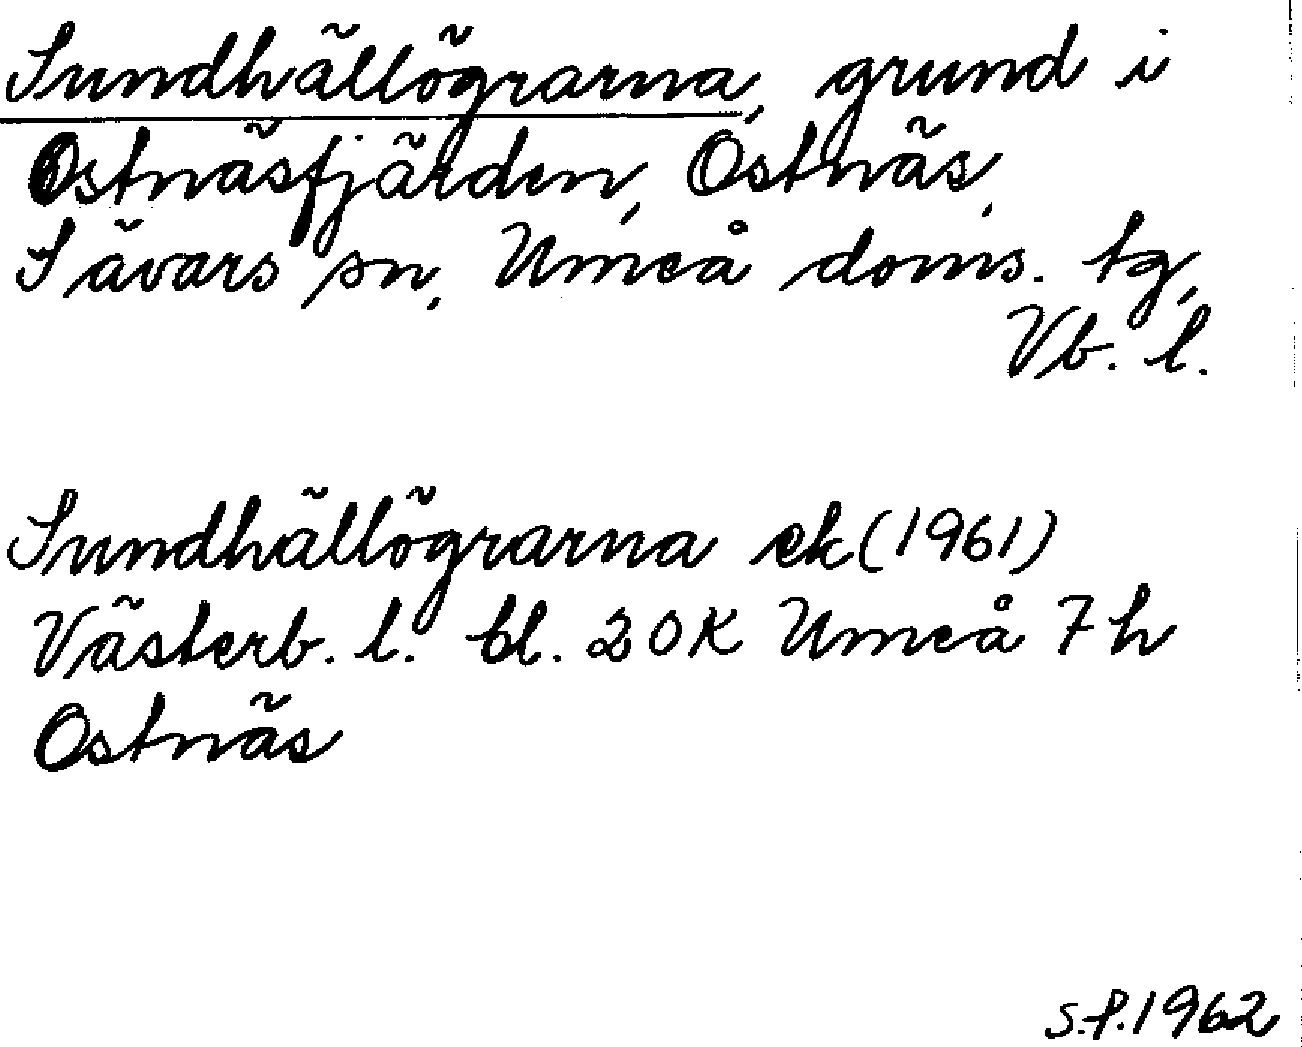 Sundhällögrarna, grund i
Ostnäsfjärden, Ostnäs,
Sävars sn, Umeå doms. tg,
Vb. l.
Sundhällögrarna ek (1961)
Västerb. l. bl. 20K Umeå 7h
Ostnäs
S.f. 1962